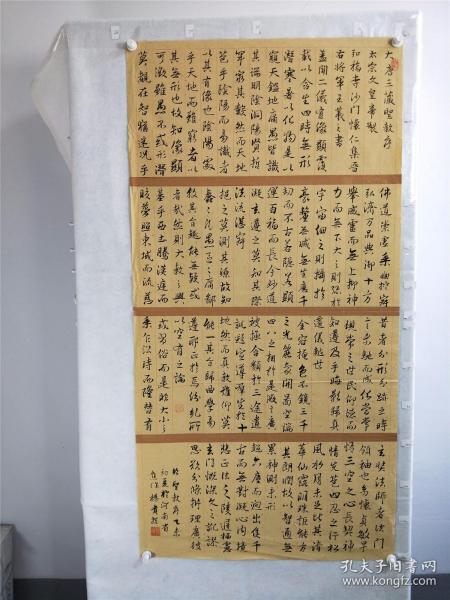 大唐三藏聖教序
太宗文皇帝製
弘福寺沙門懷仁集晉
右將軍王羲之書
蓋聞二儀有像顯覆
載以含生四時無形
潛寒暑以化物是以
窺天鑑地庸愚皆識
其端明陰洞陽賢哲
罕窮其數然而天地
苞乎陰陽而易識者
以其有像也陰陽處
乎天地而難窮者以
其無形也故知像顯
可徵雖愚不惑形潛
莫覩在智猶迷況乎
佛道崇虛乘幽控寂
弘濟万品典御十方
舉威靈而無上抑神
力而無下大之則弥於
宇宙細之則攝於
毫釐無滅無生歷千
劫而不古若隱若顯
運百福而長今妙道
凝玄遵之莫知其際
法流湛寂
挹之莫測其源故知
蠢蠢凡愚區區庸鄙
投其旨趣能無疑或
者哉然則大教之興
基乎西土騰漢庭而
皎夢照東域而流慈
昔者分形分跡之時
言未馳而成化當常
現常之世民仰德而
知遵及乎晦影歸真
遷儀越世
金容掩色不鏡三千
之光麗象開圖空端
四八之相於是微言廣
被拯含類於三途遺
訓遐宣導群生於十
地然而真教難仰莫
能一其旨歸曲學易
遵邪正於焉紛糺所
以空有之論
或習俗而是非大小之
乘乍沿時而隆替有
玄奘法師者法門
領袖也幼懷貞敏早
悟三空之心長契神
情先苞四忍之行松
風水月未足比其清
華仙露明珠詎能方
其朗潤故以智通無
累神測未形
超六塵而迥出隻千
古而無對凝心內境
悲正法之陵遲栖慮
玄門慨深文之訛謬
思欲分條析理廣彼
聖教序乙未
初夏於河南省
孔夫子旧书网